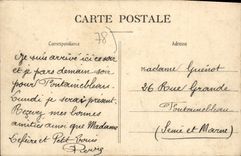 CARTE POSTALE
Correspondance
Adresse
78
Je suis arrivé ici ce soir
et je pars demain soir
pour Fontainebleau.
Lundi je serai présent.
Recevez mes bonnes
amitiés ainsi que Madame
et Petit Louis
Madame Guénot
26 Rue Grande
Fontainebleau
(Seine et Marne)